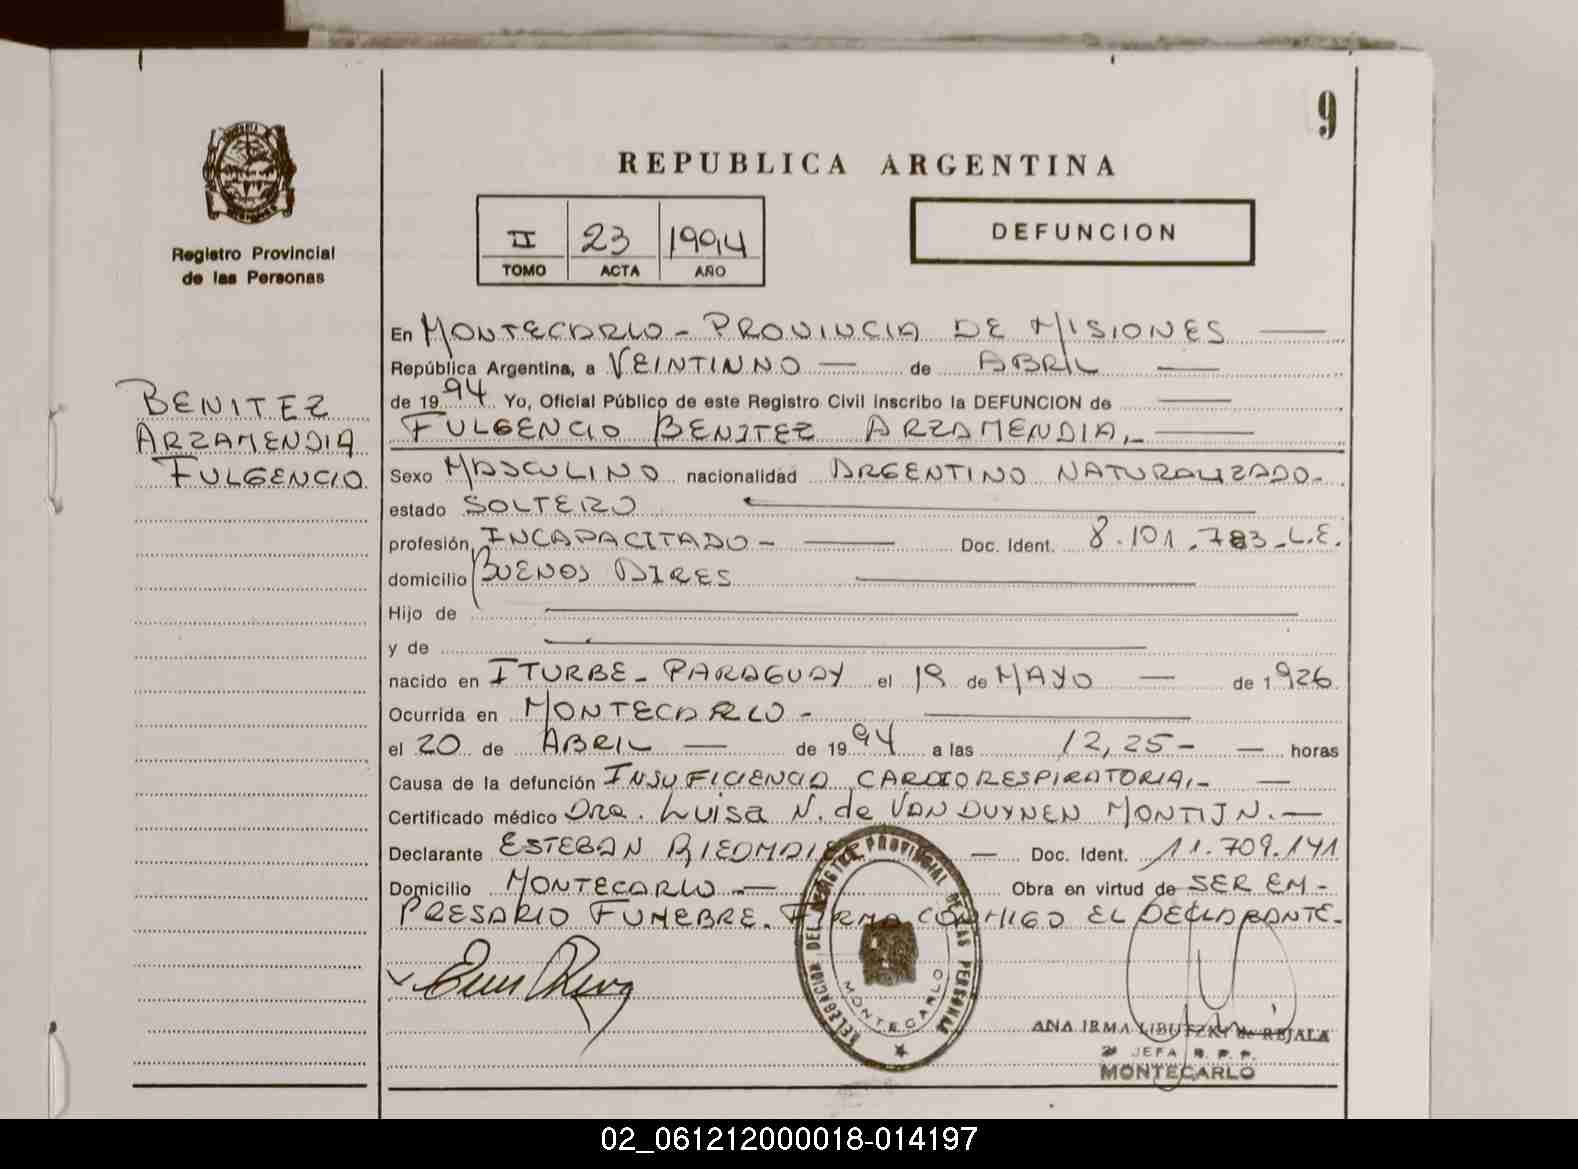 9
REPUBLICA ARGENTINA
II 23 1994
TOMO ACTA AÑO
DEFUNCION
Registro Provincial
de las Personas
BENITEZ
ARZAMENDIA
FULGENCIO
En MONTECARLO - PROVINCIA DE MISIONES
República Argentina, a VEINTIUNO de ABRIL
de 1994 Yo, Oficial Público de este Registro Civil inscribo la DEFUNCION de
FULGENCIO BENITEZ ARZAMENDIA.-
Sexo MASCULINO nacionalidad ARGENTINO NATURALIZADO-
estado SOLTERO
profesión INCAPACITADO - Doc. Ident. 8.101.783-L.E.
domicilio BUENOS AIRES
Hijo de
y de
nacido en ITURBE - PARAGUAY el 19 de MAYO de 1926
Ocurrida en MONTECARLO -
el 20 de ABRIL de 1994 a las 12,25- horas
Causa de la defunción INSUFICIENCIA CARDIORESPIRATORIA.-
Certificado médico Dra. Luisa N. de VAN DUYNEN MONTIJN.-
Declarante ESTEBAN RIEDMAIER - Doc. Ident. 11.709.141
Domicilio MONTECARLO - Obra en virtud de SER EM-
PRESARIO FUNEBRE. FIRMA CONMIGO EL DECLARANTE-
DELEGACION DEL REGISTRO PROVINCIAL DE LAS PERSONAS
MONTECARLO
ANA IRMA LIBUTZKY de REJALA
JEFA R. P. P.
MONTECARLO
02_061212000018-014197